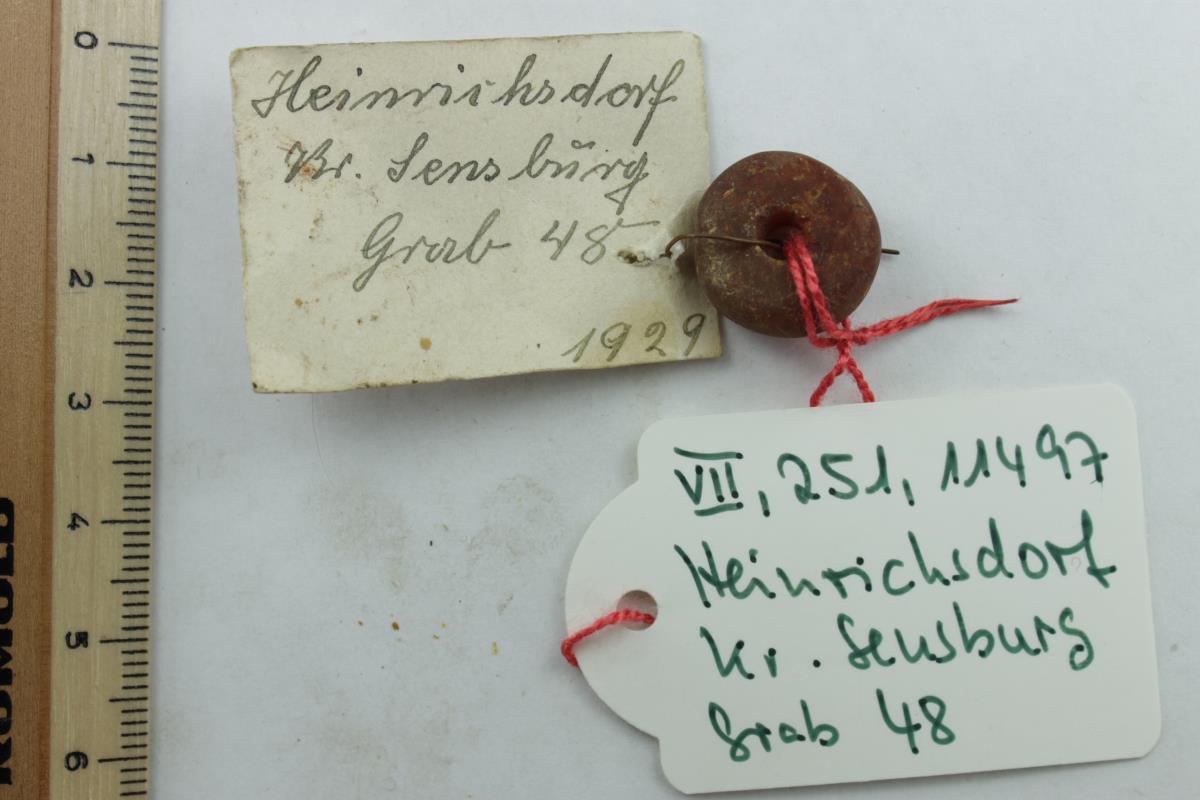 Heinrichsdorf
Kr. Sensbŭrg
Grab 48
1929
VII, 251, 11497
Heinrichsdorf
Kr. Sensburg
Grab 48
0
1
2
3
4
5
6